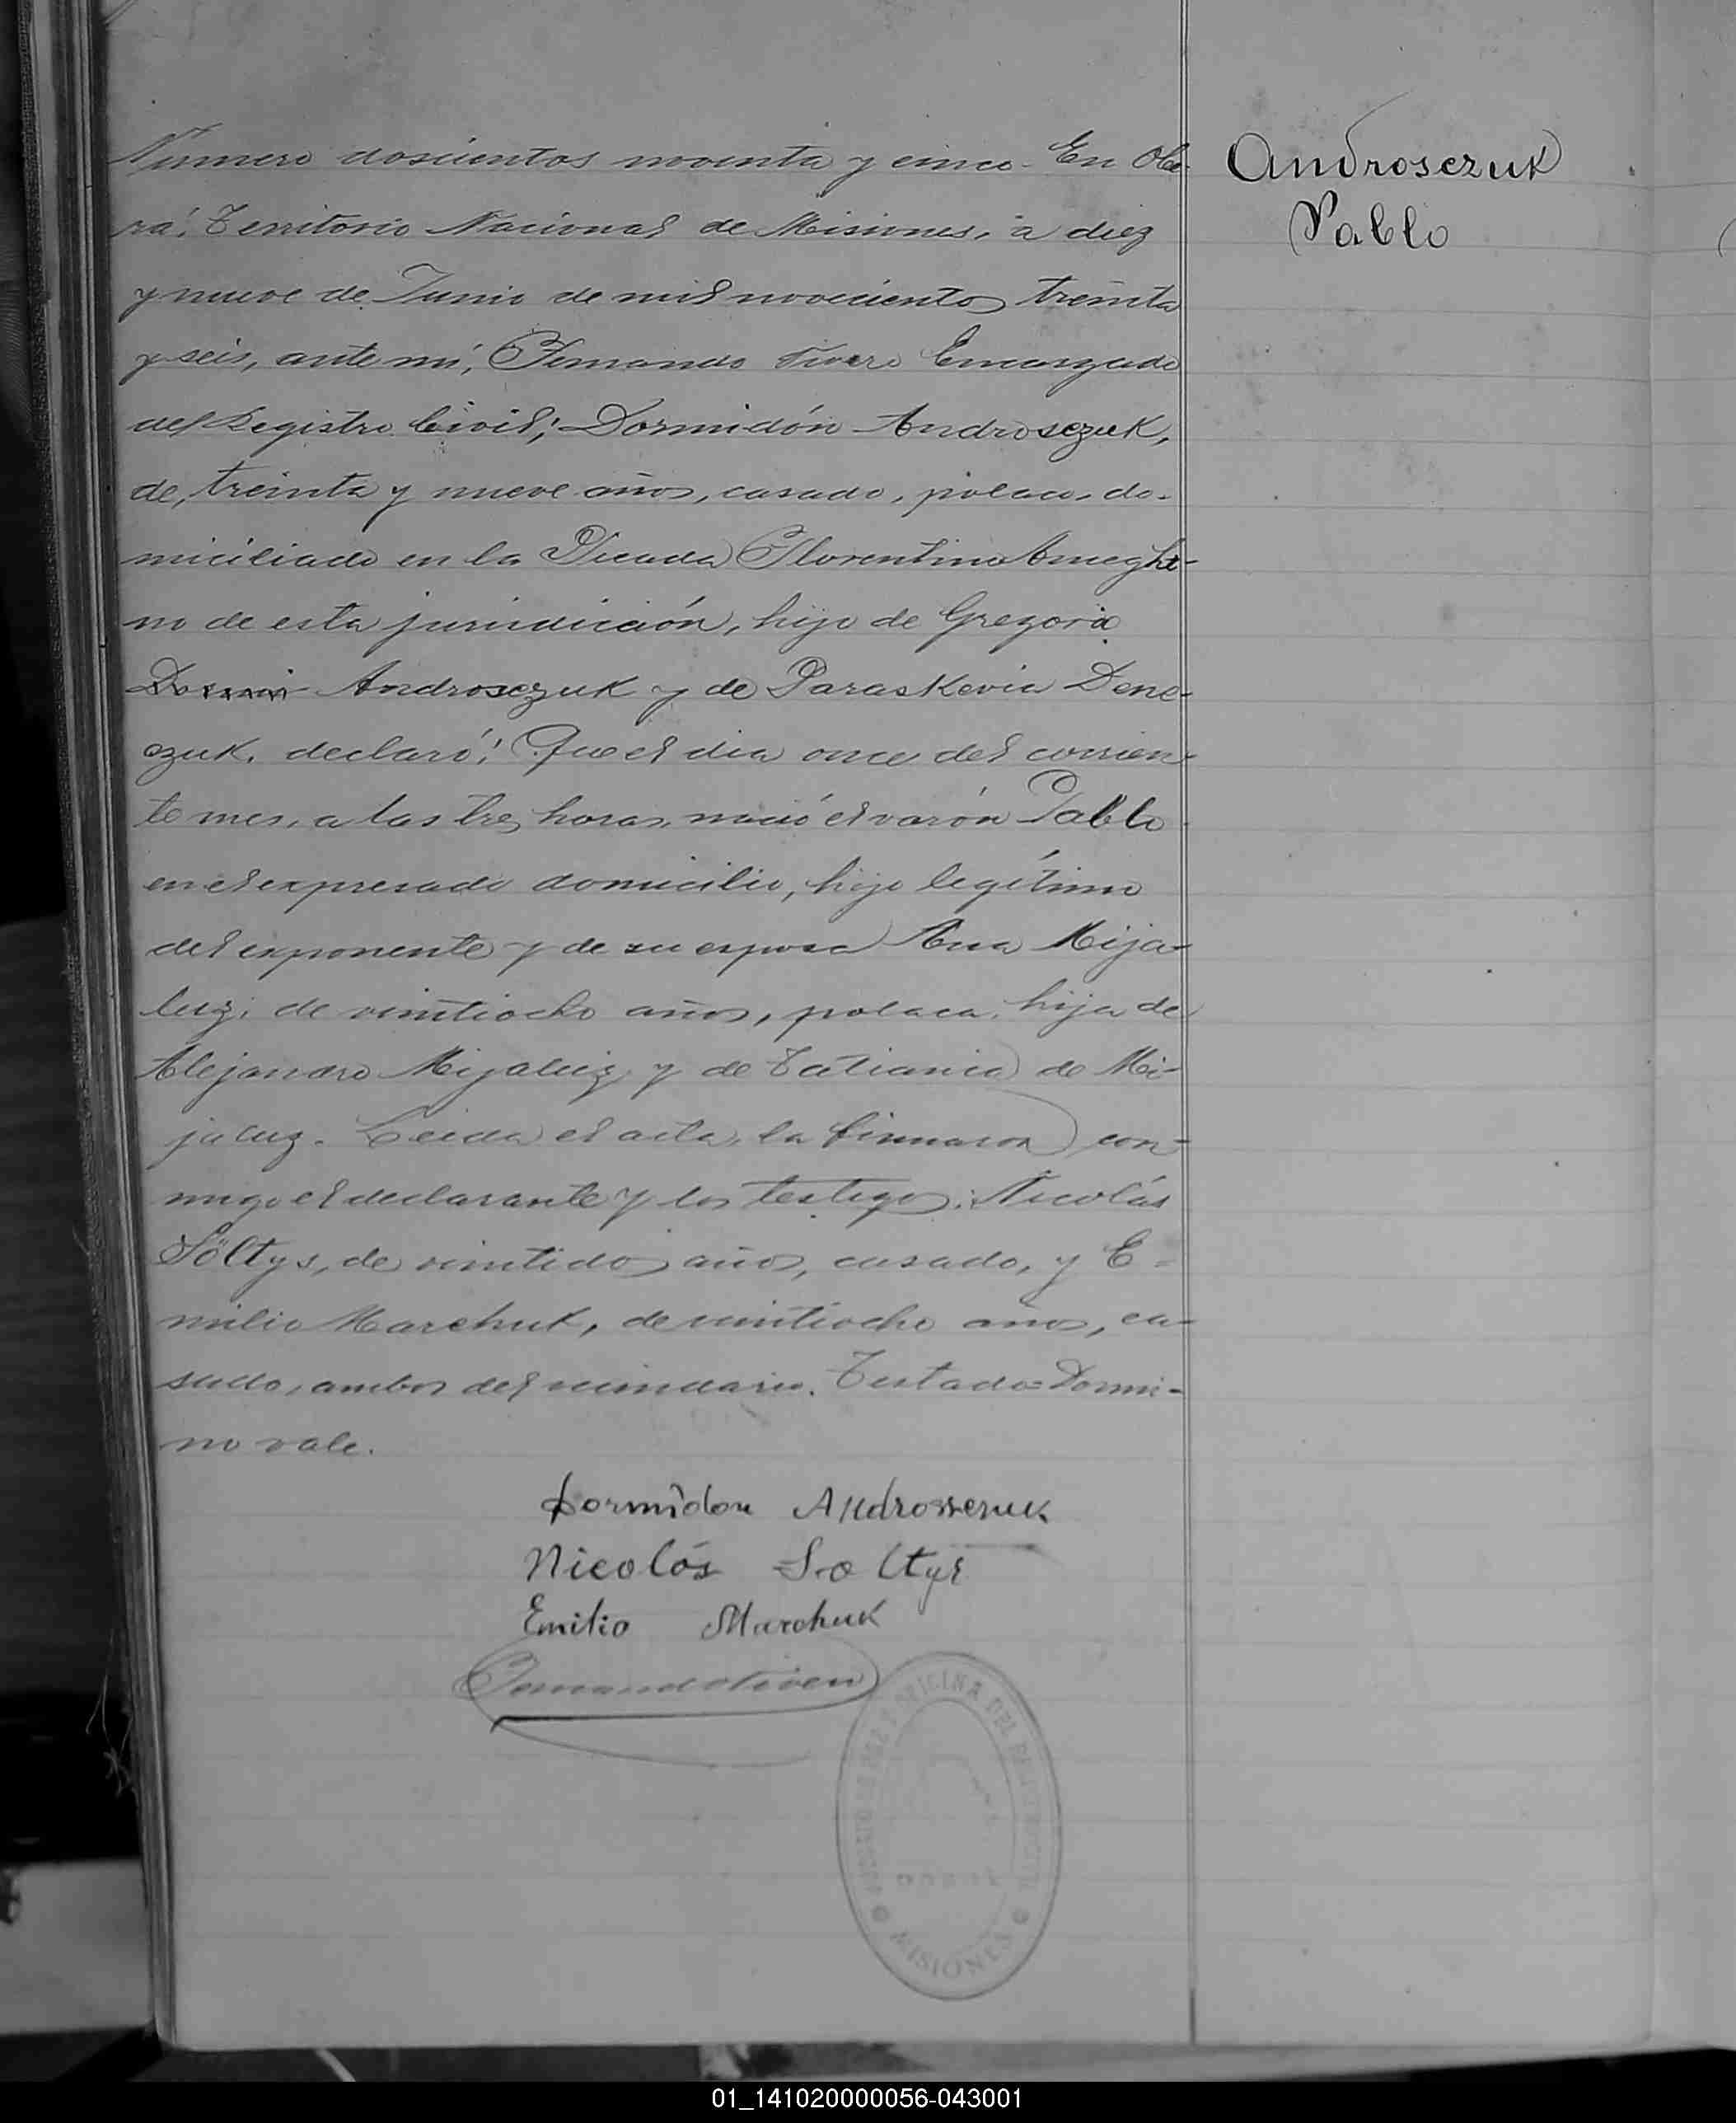 Androsczuk
Pablo
Número doscientos noventa y cinco. En Obe-
rá, Territorio Nacional de Misiones, a diez
y nueve de Junio de mil novecientos treinta
y seis, ante mí, Fernando Encargado
del Registro Civil; Dormidón Androsczuk,
de, treinta y nueve años, casado, polaco, do-
miciliado en la Picada Florentino Ameghi-
no de esta jurisdicción, hijo de Gregorio
Dormi Androsczuk y de Paraskevia Dene-
czuk, declaró: Que el día once del corrien-
te mes, a las tres horas, nació el varón Pablo
en el expresado domicilio, hijo legítimo
del exponente y de su esposa Ana Mija-
luz, de veintiocho años, polaca, hija de
Alejandro Mijaluz y de Tatiania de Mi-
jaluz. Leida el acta, la firmaron con-
migo el declarante y los testigos: Nicolás
Söltys, de veintidos años, casado, y E-
milio Marchuk, de veintiocho años, ca-
sado, ambos del vecindario. Testado=Dormi-
no vale.
Dormidon Androsczuk
Nicolás Soltys
Emilio Marchuk
OFICINA DEL REGISTRO CIVIL
MISIONES
01_141020000056-043001